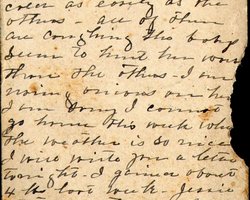 color as easily as the
others - all of them
are coughing this body
seem to hurt her worse
than the others - I am
using onions on her
I am sorry I cannot
go home this week when
the weather is so nice
I will write you a letter
tonight - I gained about
4 lb last week - Jessie